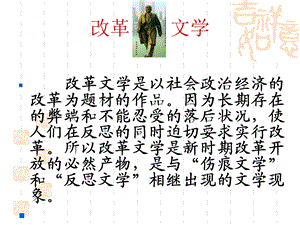 改革 文学
改革文学是以社会政治经济的
改革为题材的作品。因为长期存在
的弊端和不能忍受的落后状况，使
人们在反思的同时迫切要求实行改
革。所以改革文学是新时期改革开
放的必然产物，是与“伤痕文学”
和“反思文学”相继出现的文学现
象。